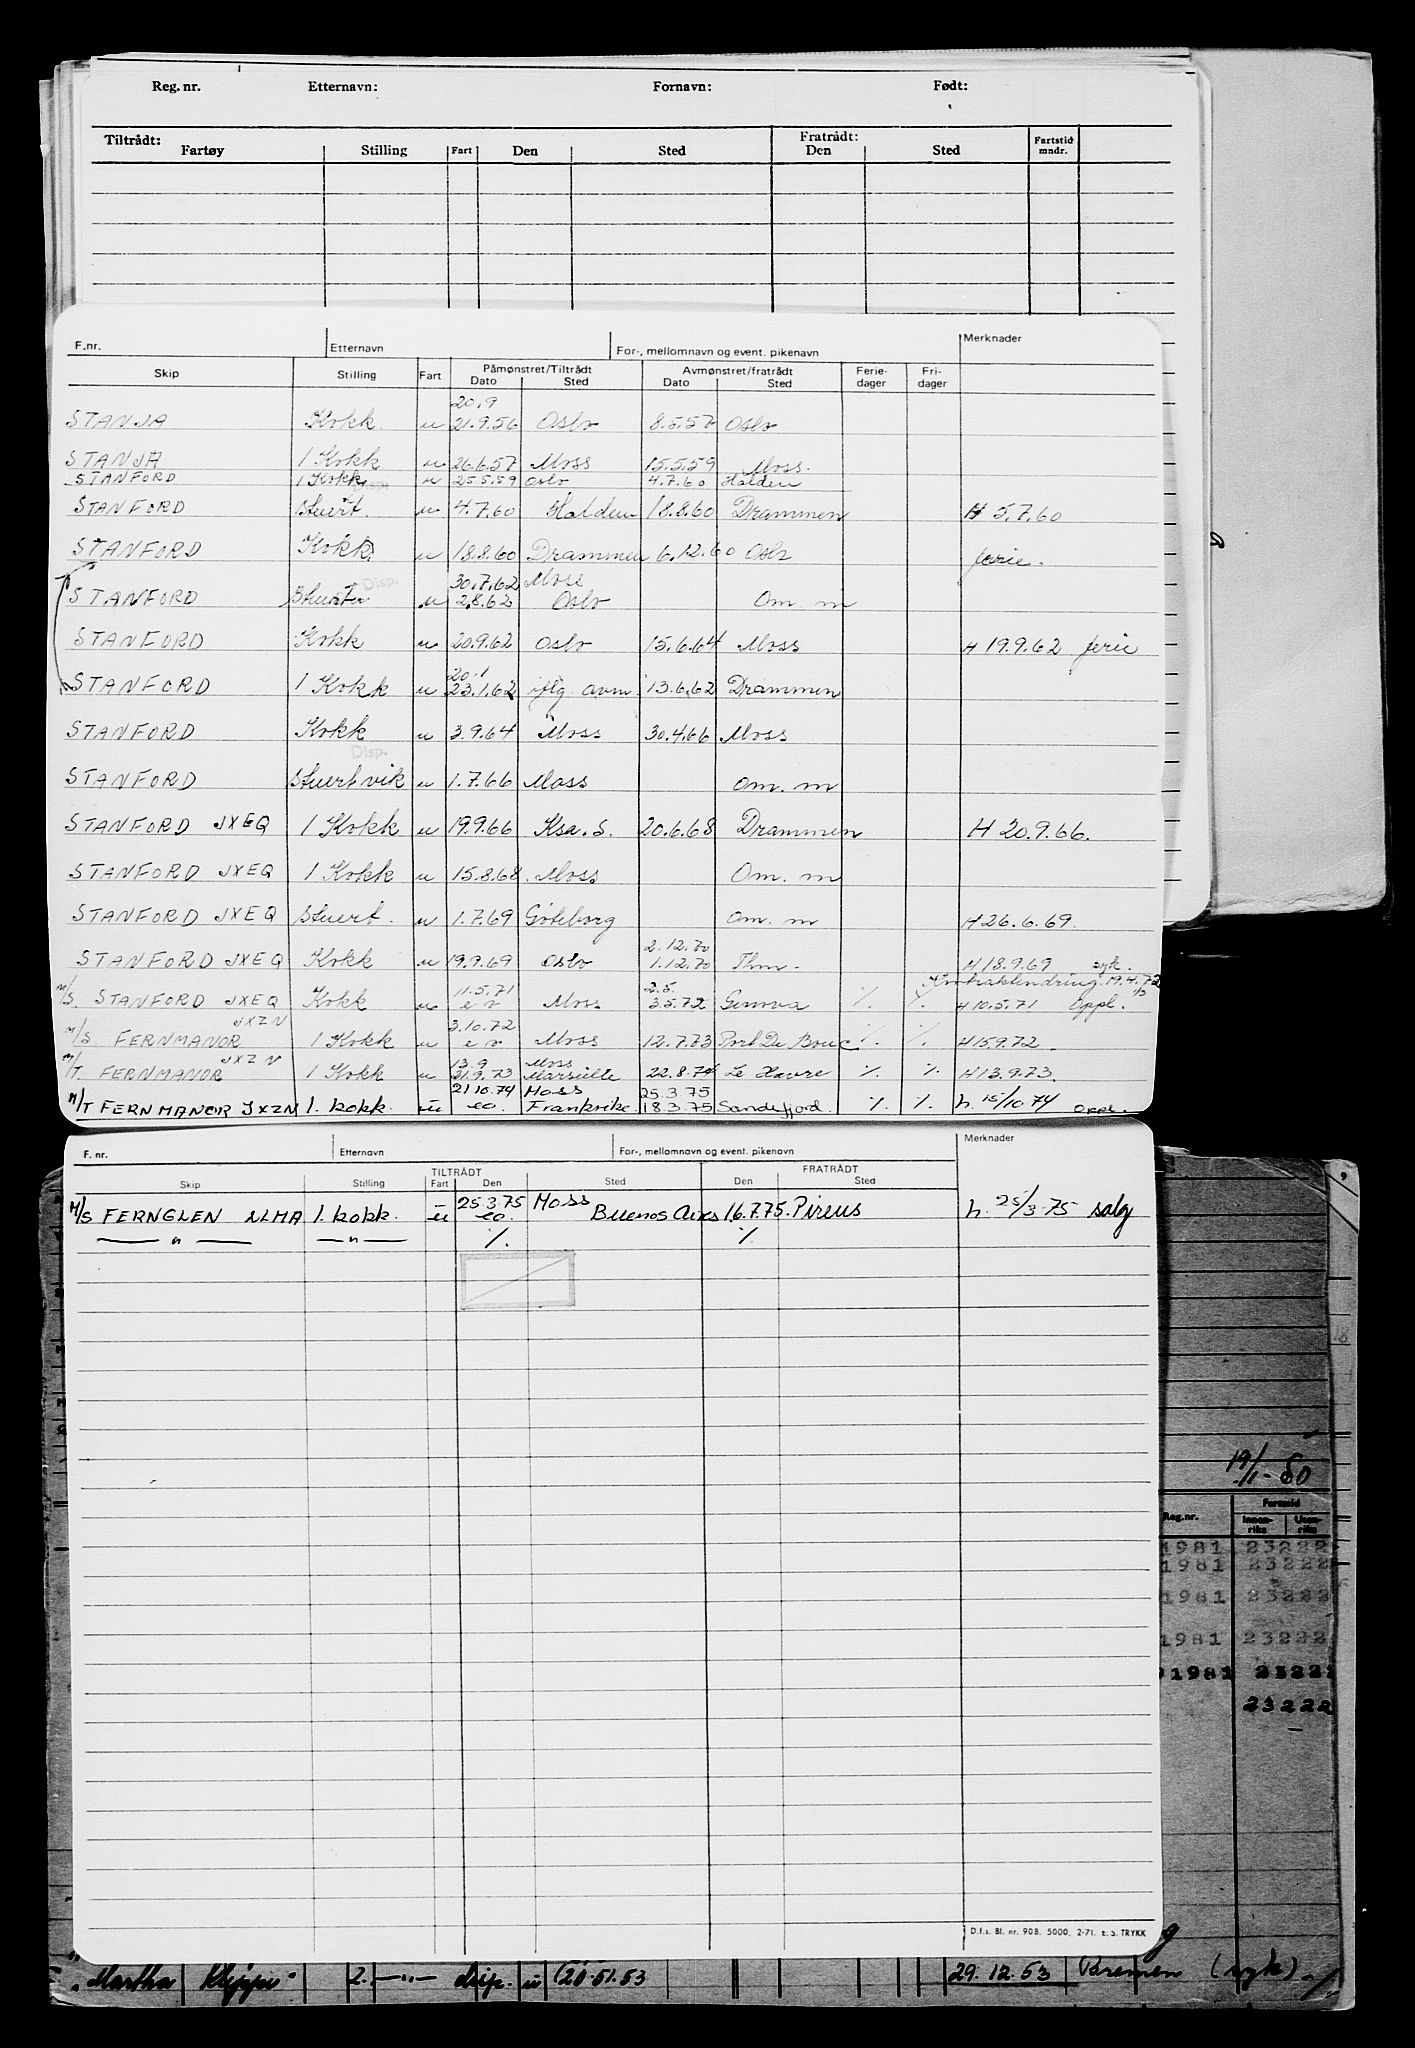 Reg. nr. Etternavn: Fornavn: Født:
Tiltrådt: Fratrådt:
Fartøy Stilling Fart Den Sted Den Sted Fartstid mndr.
F.nr. Etternavn For-, mellomnavn og event. pikenavn Merknader
Skip Stilling Fart Påmønstret/Tiltrådt Avmønstret/fratrådt Ferie-dager Fri-dager
Dato Sted Dato Sted
20.9
STANJA Kokk u 21.9.56 Oslo 8.5.57 Oslo
STANJA 1 Kokk u 26.6.57 Moss 15.5.59 Moss.
STANFORD 1 Kokk u 25.5.59 Oslo 4.7.60 Halden
STANFORD Stuert. u 4.7.60 Halden 18.8.60 Drammen H 5.7.60
STANFORD Kokk u 18.8.60 Drammen 6.12.60 Oslo ferie.
Disp. 30.7.62 Moss
STANFORD u 2.8.62 Oslo Om. m
STANFORD Kokk u 20.9.62 Oslo 15.6.64 Moss H 19.9.62 ferie
20.1
STANFORD 1 Kokk u 23.1.62 iflg. avm 13.6.62 Drammen
STANFORD Kokk u 3.9.64 Moss 30.4.66 Moss
Disp.
STANFORD Stuert vik u 1.7.66 Moss Om. m
STANFORD JXEQ 1 Kokk u 19.9.66 Ksa. S. 20.6.68 Drammen H 20.9.66.
STANFORD JXEQ 1 Kokk u 15.8.68 Moss Om. m
STANFORD JXEQ Stuert. u 1.7.69 Göteborg Om. m H 26.6.69.
2.12.70
STANFORD JXEQ Kokk u 19.9.69 Oslo 1.12.70 Thm. H 18.9.69 syk.
11.5.71 2.5. Kontraktendring. 19.4.72
M/S. STANFORD JXEQ Kokk u eo Moss 3.5.72 Genova % % H 10.5.71 Oppl.
JXZN 3.10.72
M/S FERNMANOR 1 Kokk u eo Moss 12.7.73 Port De Bouc % % H 15.9.72
JXZN 13.9 Moss
M/T. FERNMANOR 1 Kokk u 21.9.73 Marseille 22.8.74 Le Havre % % H 13.9.73.
21.10.74 Moss 25.3.75
M/T FERNMANOR JXZN 1. kokk. u eo. Frankrike 18.3.75 Sandefjord. % % h. 15/10.74 Oppl.
F. nr. Etternavn For-, mellomnavn og event. pikenavn Merknader
TILTRÅDT FRATRÅDT
Skip Stilling Fart Den Sted Den Sted
25.3.75 Moss
M/S FERNGLEN LLMA 1. kokk. u eo. Buenos Aires 16.7.75. Pireus h. 25/3-75 salg
— " — — " — % %
19/1-80
Reg.nr. Fartstid
Innen-riks Uten-riks
1981 23222
1981 23222
1981 23222
1981 23222
1981 23222
23222
D.f.s. Bl. nr. 90B. 5000. 2-71. E. S. TRYKK
"Martha Kleppe" 2. —"— disp. u (20.51.53 29.12.53 Bremen (syk) %